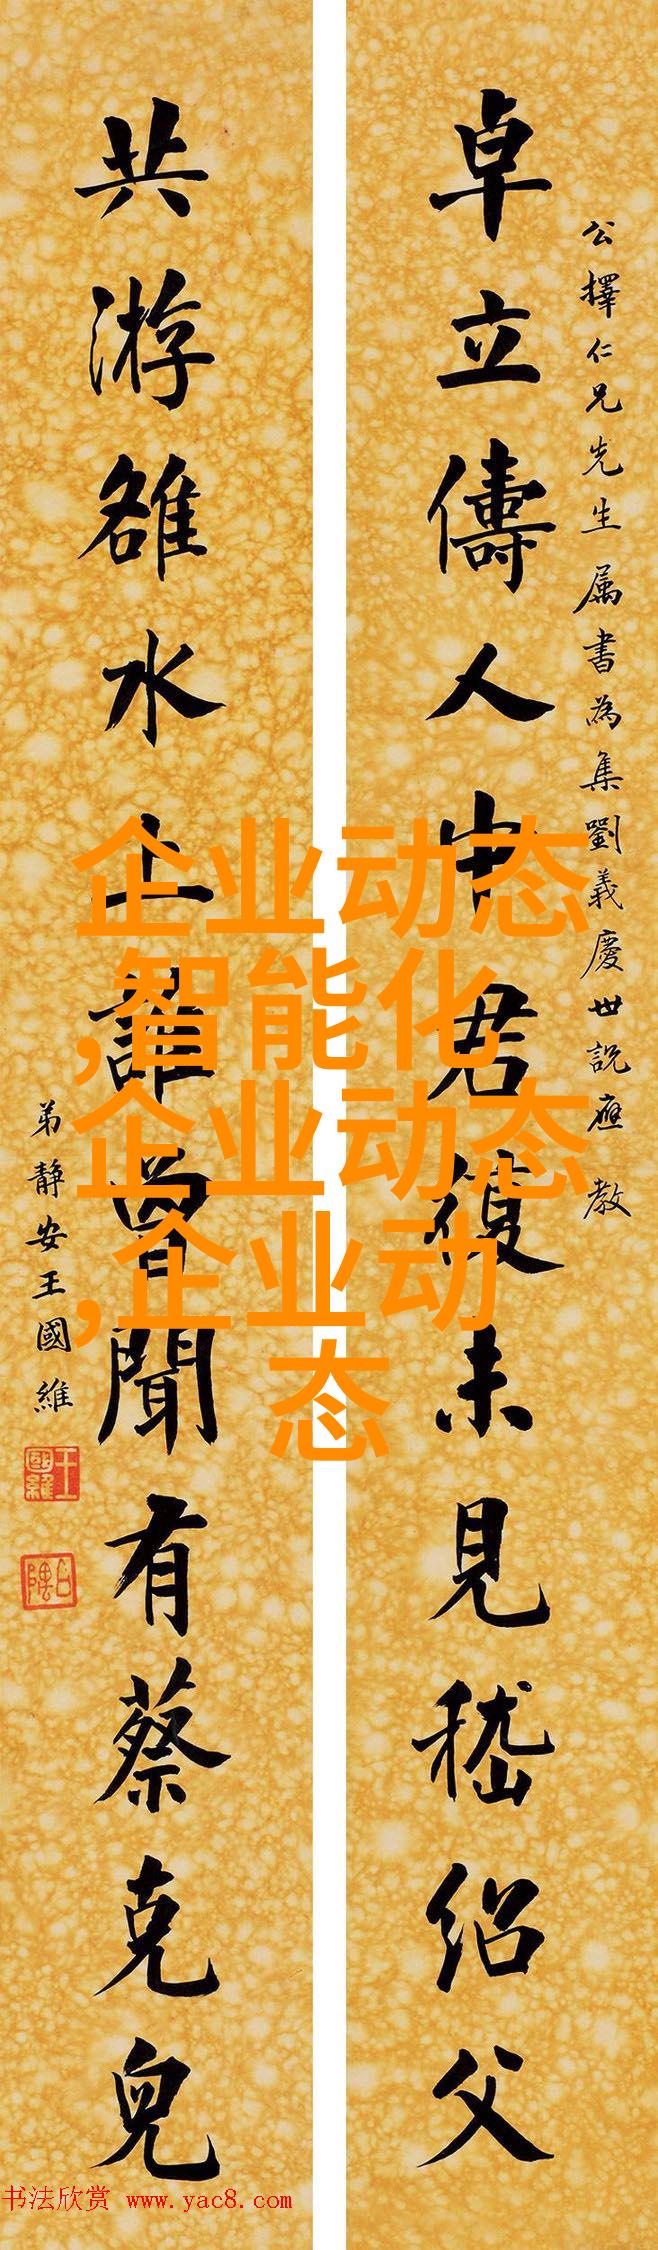 公擇仁兄先生属書為集劉義慶世説應教
卓立儔人中君復未見嵇紹父
共游雒水上誰曾聞有蔡克兒
弟静安王國維
王國維
企业动态
,智能化,
企业动态
,企业动
态
书法欣赏 www.yac8.com